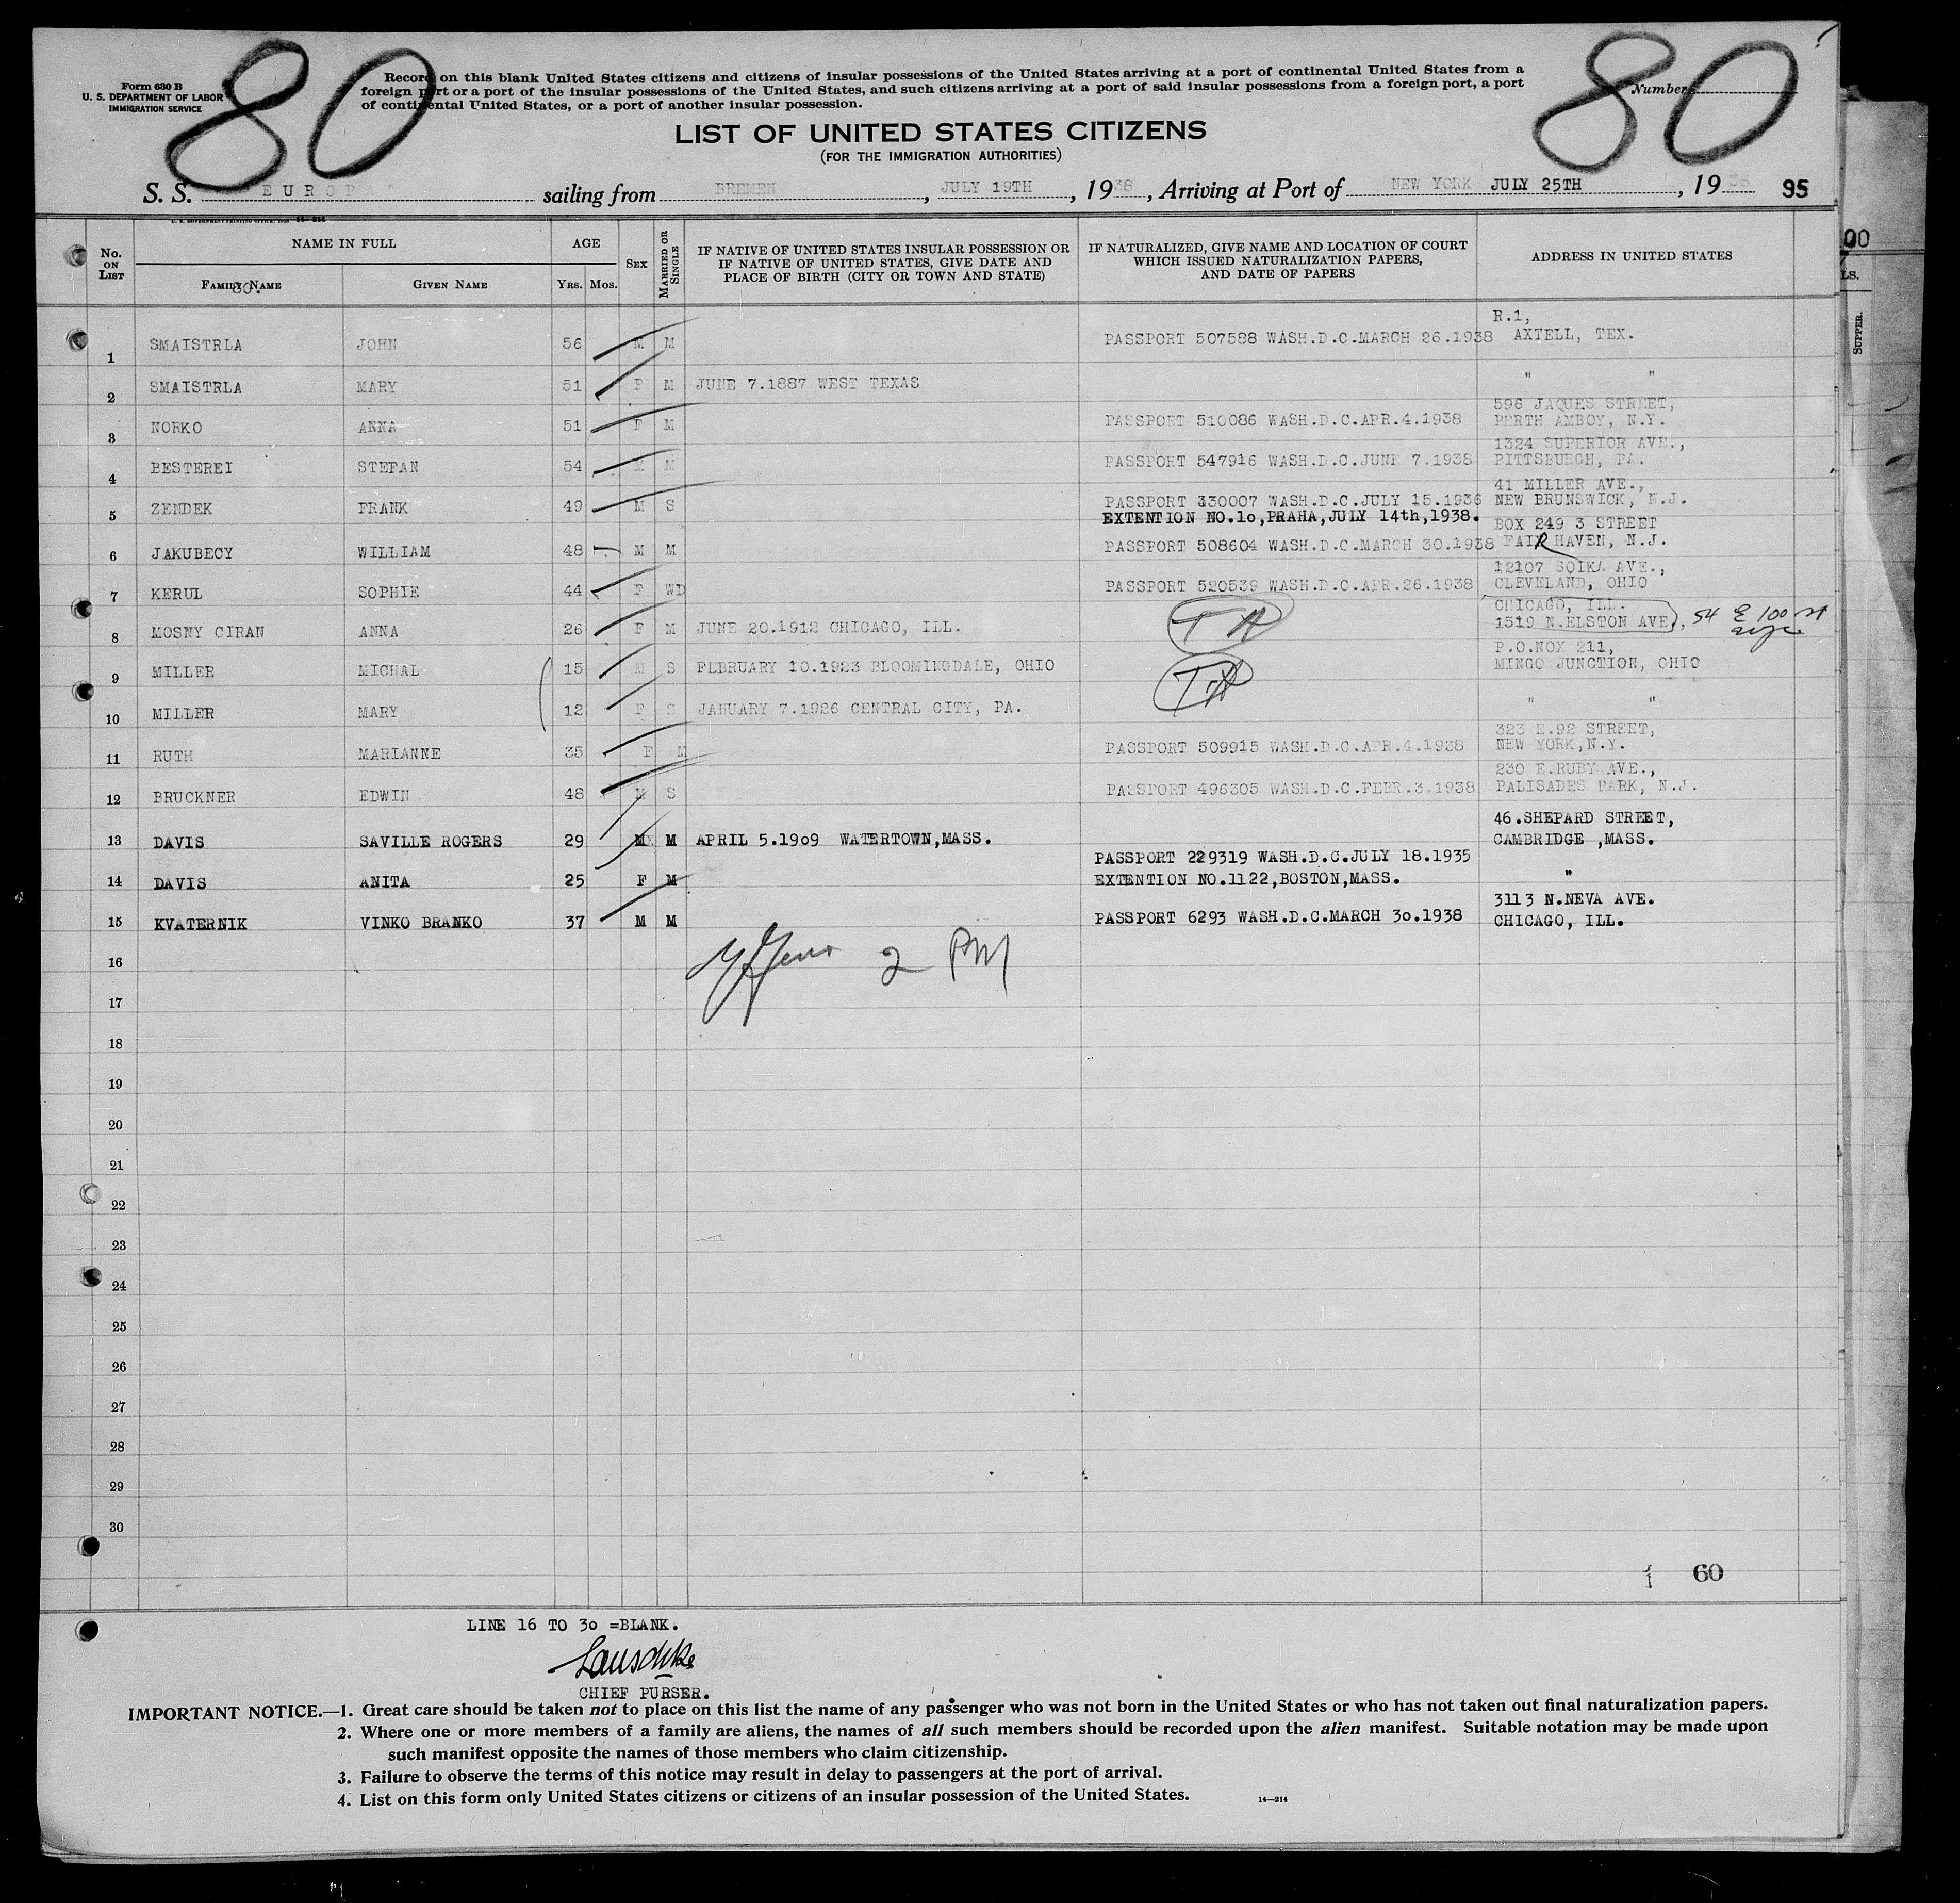 80
80
Form 630 B
U. S. DEPARTMENT OF LABOR
IMMIGRATION SERVICE
Record on this blank United States citizens and citizens of insular possessions of the United States arriving at a port of continental United States from a
foreign port or a port of the insular possessions of the United States, and such citizens arriving at a port of said insular possessions from a foreign port, a port
of continental United States, or a port of another insular possession.
Number
LIST OF UNITED STATES CITIZENS
(FOR THE IMMIGRATION AUTHORITIES)
S. S. EUROPA" sailing from BREMEN, JULY 19TH, 1938, Arriving at Port of NEW YORK JULY 25TH, 1938 95
No. ON LIST
NAME IN FULL
FAMILY NAME
GIVEN NAME
AGE
YRS. MOS.
SEX
MARRIED OR SINGLE
IF NATIVE OF UNITED STATES INSULAR POSSESSION OR
IF NATIVE OF UNITED STATES, GIVE DATE AND
PLACE OF BIRTH (CITY OR TOWN AND STATE)
IF NATURALIZED, GIVE NAME AND LOCATION OF COURT
WHICH ISSUED NATURALIZATION PAPERS,
AND DATE OF PAPERS
ADDRESS IN UNITED STATES
80.
00
LS.
SUPPER.
R.1,
1 SMAISTRLA JOHN 56 M M PASSPORT 507588 WASH.D.C.MARCH 26.1938 AXTELL, TEX.
2 SMAISTRLA MARY 51 F M JUNE 7.1887 WEST TEXAS " "
596 JAQUES STREET,
3 NORKO ANNA 51 F M PASSPORT 510086 WASH.D.C.APR.4.1938 PERTH AMBOY, N.Y.
1324 SUPERIOR AVE.,
4 BESTEREI STEFAN 54 M M PASSPORT 547916 WASH.D.C.JUNE 7.1938 PITTSBURGH, PA.
41 MILLER AVE.,
5 ZENDEK FRANK 49 M S PASSPORT 330007 WASH.D.C.JULY 15.1936 NEW BRUNSWICK, N.J.
EXTENTION NO.1o,PRAHA,JULY 14th,1938.
BOX 249 3 STREET
6 JAKUBECY WILLIAM 48 M M PASSPORT 508604 WASH.D.C.MARCH 30.1938 FAIR HAVEN, N.J.
12107 SOIKA AVE.,
7 KERUL SOPHIE 44 F WD PASSPORT 520539 WASH.D.C.APR.26.1938 CLEVELAND, OHIO
CHICAGO, ILL.
8 MOSNY CIRAN ANNA 26 F M JUNE 20.1912 CHICAGO, ILL. 1519 N.ELSTON AVE., 54 E 100 st
P.O.NOX 211,
9 MILLER MICHAL 15 M S FEBRUARY 10.1923 BLOOMINGDALE, OHIO MINGO JUNCTION, OHIO
10 MILLER MARY 12 F S JANUARY 7.1926 CENTRAL CITY, PA. " "
323 E.92 STREET,
11 RUTH MARIANNE 35 F M PASSPORT 509915 WASH.D.C.APR.4.1938 NEW YORK,N.Y.
230 E.RUBY AVE.,
12 BRUCKNER EDWIN 48 M S PASSPORT 496305 WASH.D.C.FEBR.3.1938 PALISADES PARK, N.J.
46.SHEPARD STREET,
13 DAVIS SAVILLE ROGERS 29 M M APRIL 5.19o9 WATERTOWN,MASS. CAMBRIDGE ,MASS.
PASSPORT 229319 WASH.D.C.JULY 18.1935
14 DAVIS ANITA 25 F M EXTENTION NO.1122,BOSTON,MASS. "
3113 N.NEVA AVE.
15 KVATERNIK VINKO BRANKO 37 M M PASSPORT 6293 WASH.D.C.MARCH 3o.1938 CHICAGO, ILL.
16
2 PM
17
18
19
20
21
22
23
24
25
26
27
28
29
30
60
LINE 16 TO 3o =BLANK.
CHIEF PURSER.
IMPORTANT NOTICE.—1. Great care should be taken not to place on this list the name of any passenger who was not born in the United States or who has not taken out final naturalization papers.
2. Where one or more members of a family are aliens, the names of all such members should be recorded upon the alien manifest. Suitable notation may be made upon
such manifest opposite the names of those members who claim citizenship.
3. Failure to observe the terms of this notice may result in delay to passengers at the port of arrival.
4. List on this form only United States citizens or citizens of an insular possession of the United States.
14—214